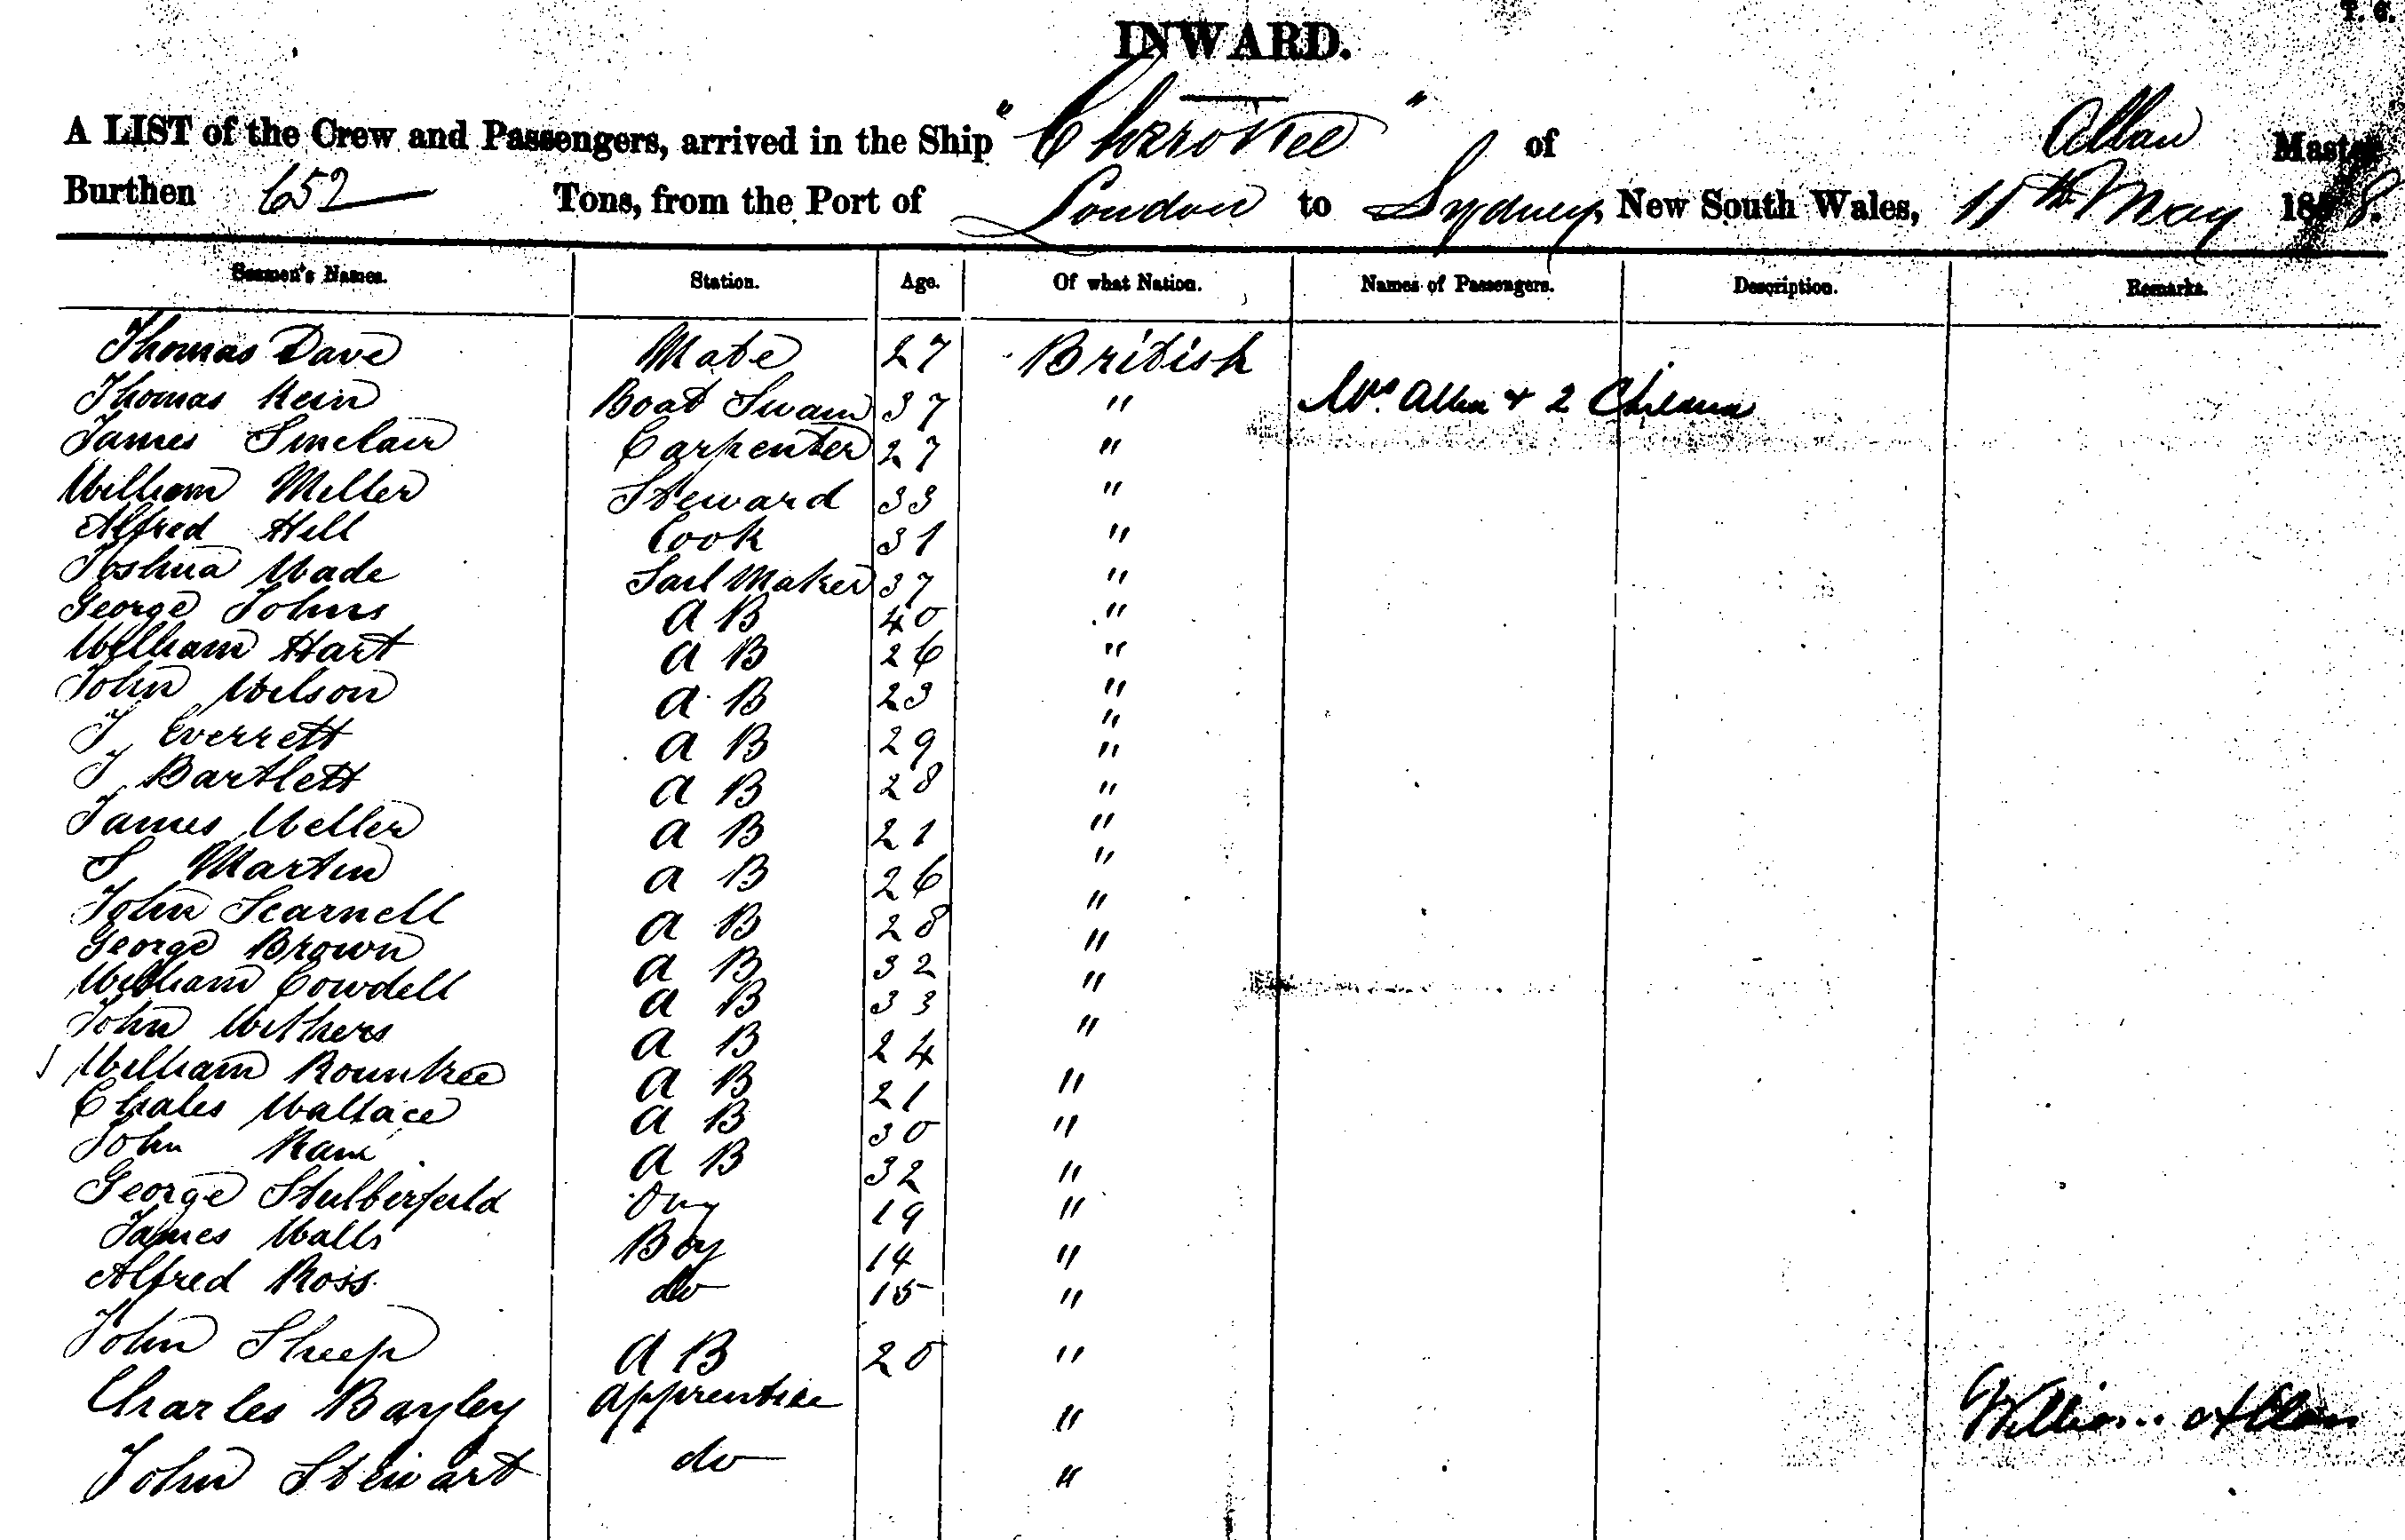 T. C.
INWARD.
A LIST of the Crew and Passengers, arrived in the Ship "Cherokee" of Allan Master
Burthen 652 Tons, from the Port of London to Sydney, New South Wales, 11th May 18 8.
Seamen's Names. Station. Age. Of what Nation. Names of Passengers. Description. Remarks.
Thomas Dave Mate 27 British
Thomas Kein Boat Swain 37 " Mrs. Allan & 2 Children
James Sinclair Carpenter 27 "
William Miller Steward 33 "
Alfred Hill Cook 31 "
Joshua Wade Sail Maker 37 "
George Johns A B 40 "
William Hart A B 26 "
John Wilson A B 23 "
J Everrett A B 29 "
J Bartlett A B 28 "
James Weller A B 21 "
S Martin A B 26 "
John Scarnell A B 28 "
George Brown A B 32 "
William Cowdell A B 33 "
John Withers A B 24 "
William Rountree A B 21 "
Chales Wallace A B 30 "
John A B 32 "
George Stulberfeild Ory 19 "
James Walls Boy 14 "
Alfred Ross do 15 "
John Sheep A B 20 "
Charles Bayley Apprentice " William Allan
John Stewart do "